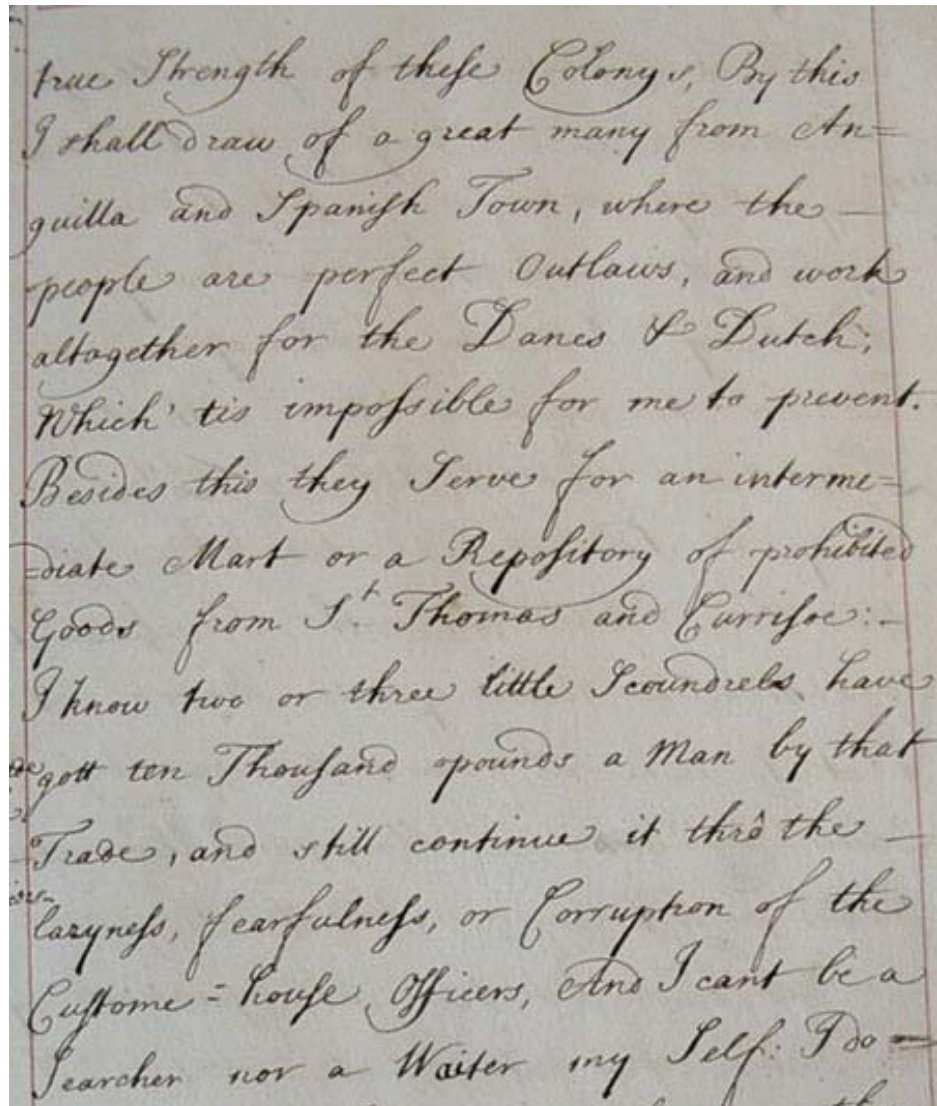 true Strength of these Colonys, By this
I shall draw of a great many from An=
guilla and Spanish Town, where the —
people are perfect Outlaws, and work
altogether for the Danes & Dutch;
Which 'tis impossible for me to prevent.
Besides this they Serve for an interme=
=diate Mart or a Repository of prohibited
Goods from St. Thomas and Currisoe:-
I know two or three little Scoundrels have
gott ten Thousand pounds a Man by that
Trade, and still continue it thrô the —
lazyness, fearfulness, or Corruption of the
Custome=house Officers, And I cant be a
Searcher nor a Waiter my Self: I do =